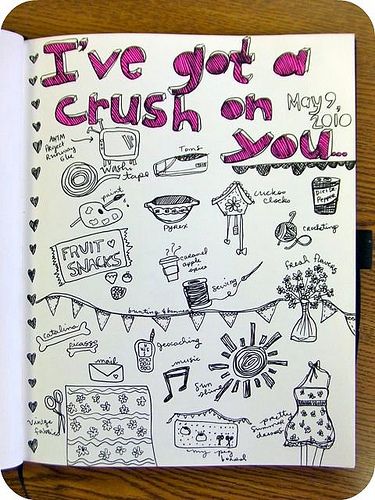 I've got a
crush on
you...
May 9,
2010
ANTM
Project
Runway
Glee
Washi
tape
Toms
paint
Pyrex
cuckoo
clocks
Dr
Pepper
crocheting
FRUIT
SNACKS
caramel
apple
spice
sewing
fresh flowers
bunting & banners
Catalina
picasso
geocaching
mail
music
sun
shine
Vintage
fabric
my pin
pretty
summer
dresses